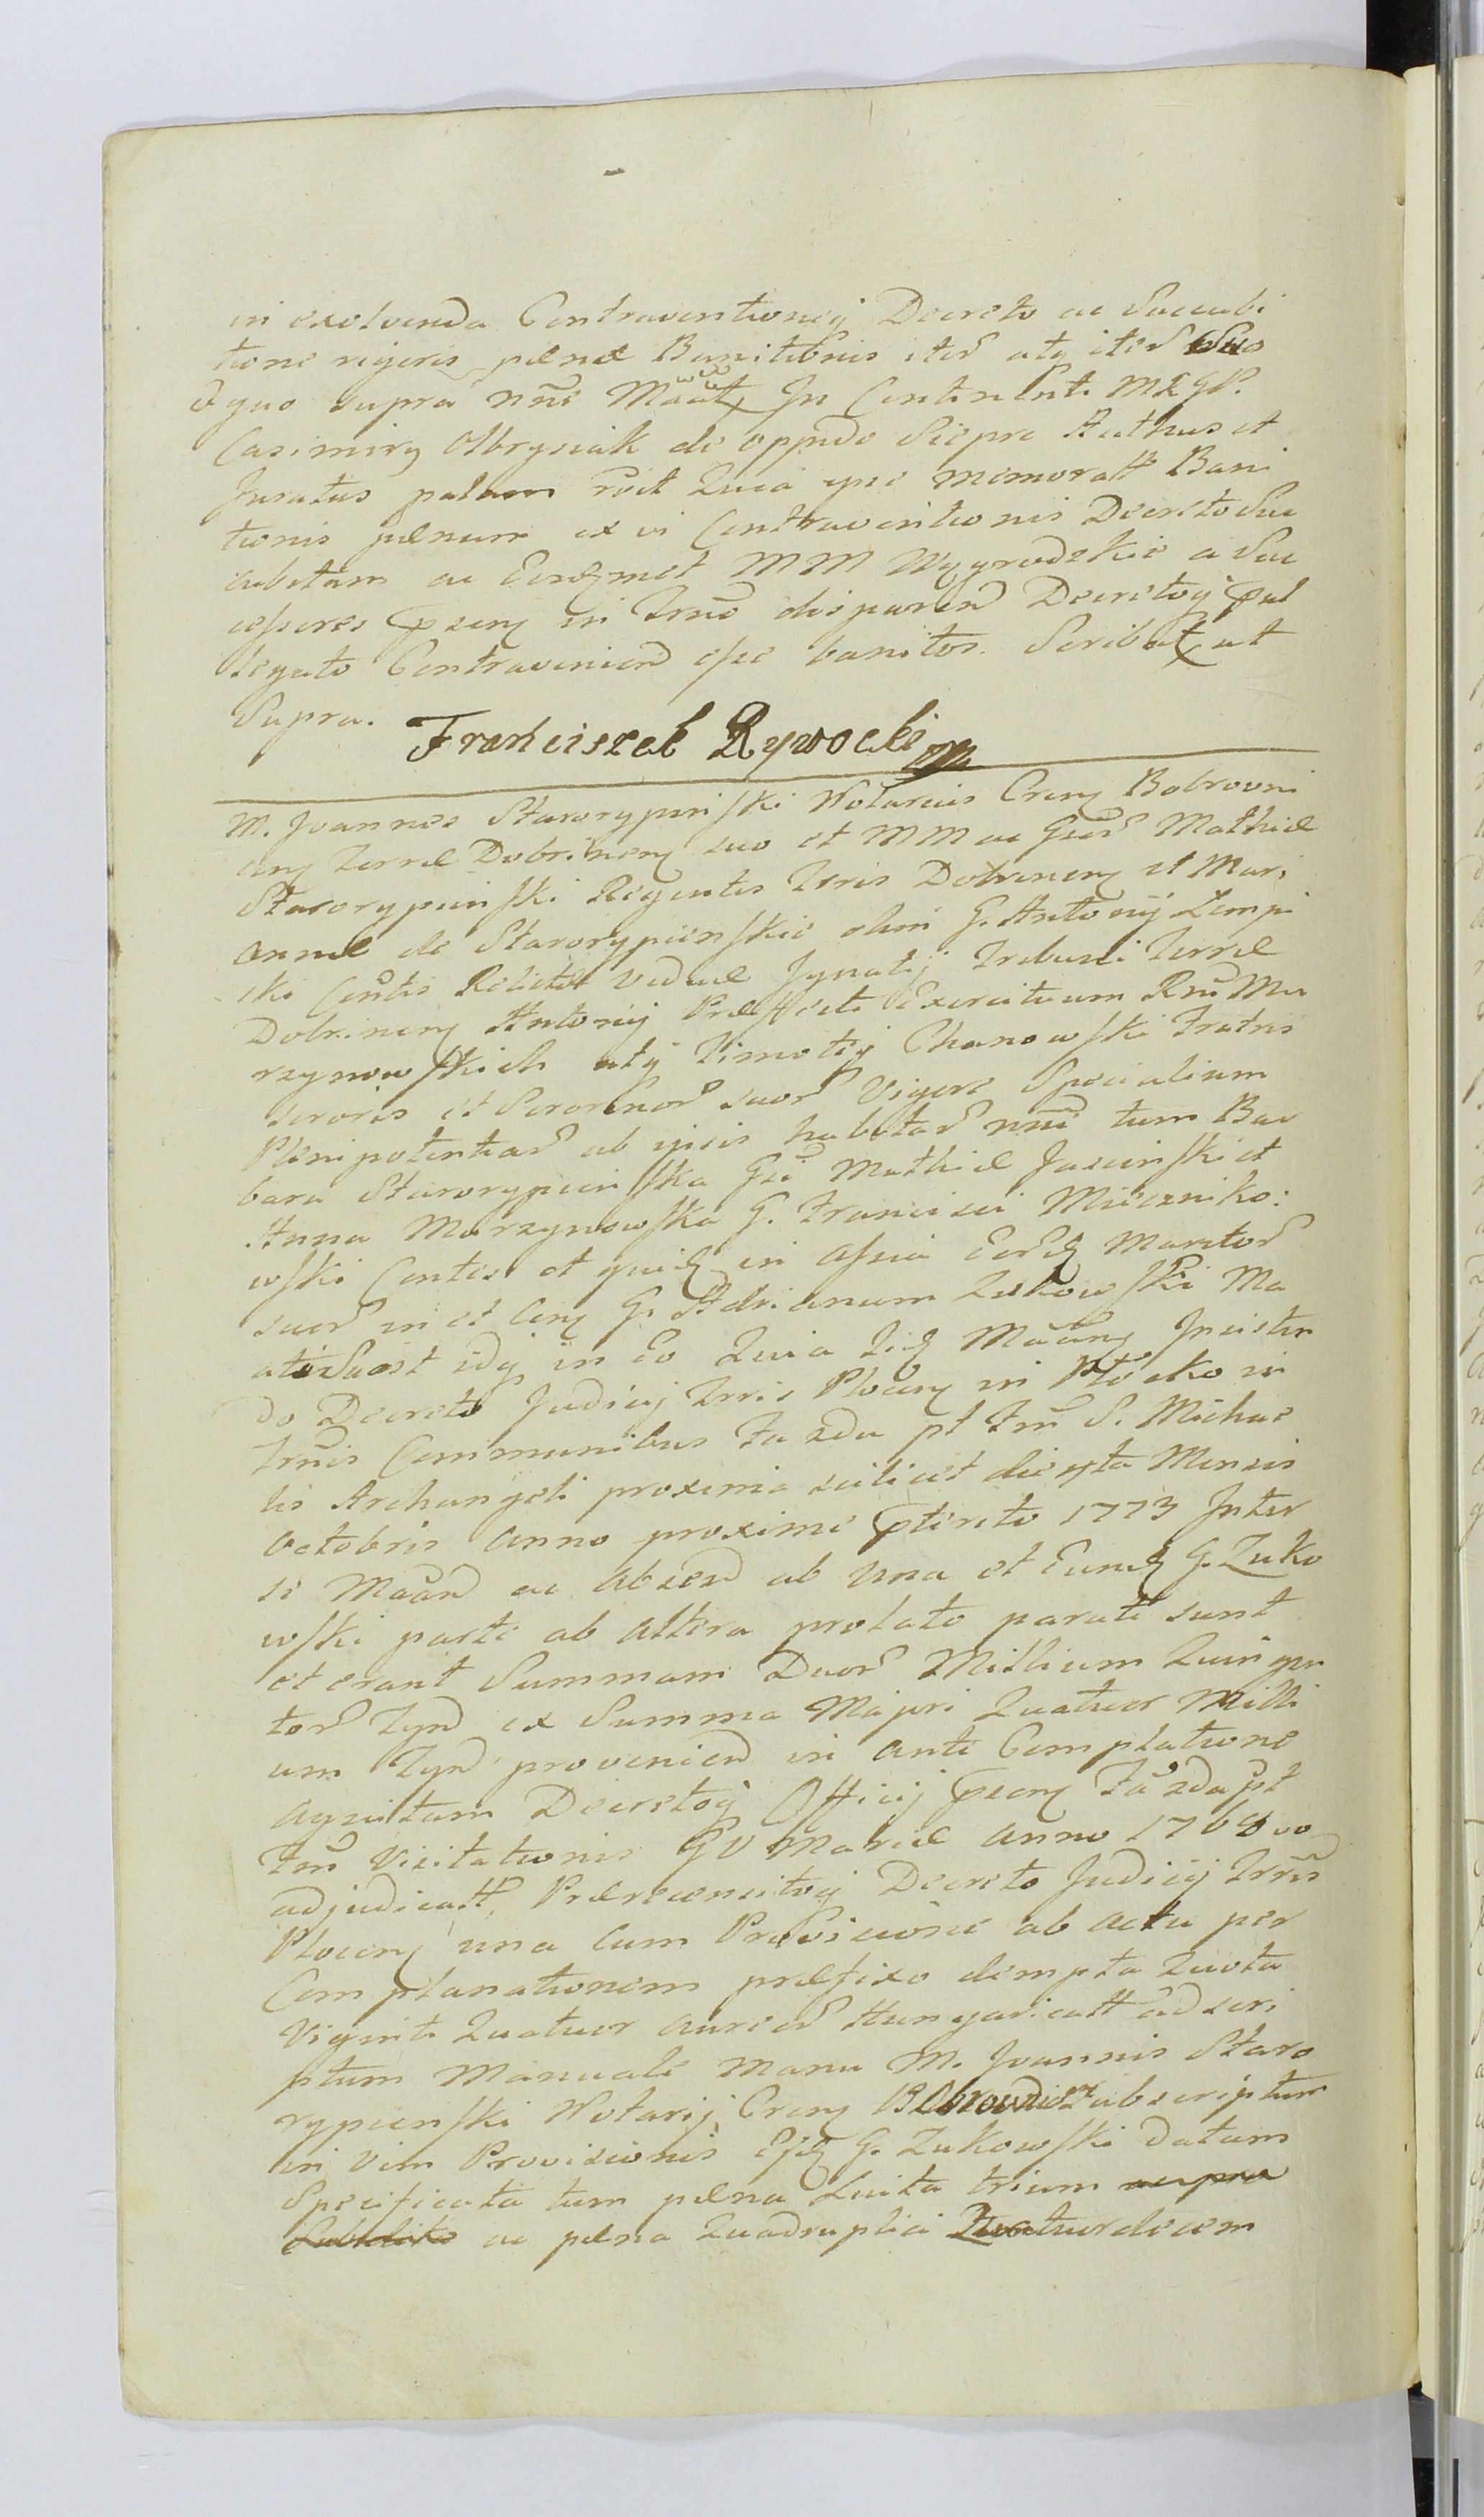 in exolvenda Contraventioney Decreto ac Succubi
tione rigoris pænæ Banitionis iter atq iter suo
quo supra nñe Maāt In Continenti MXGD.
Casimirg Olbrysiak de oppido Siepre Authus et
Juratus palam rōit Quia ipse memoratt Bani
tionis pænam ex vi Contraventionis Decreto Suc
cubitam ac Eosqmet MM Wygrodzkie a Suc
cessores in Trno disparend Decretoy
legato Contraveniend esse banitos. Scribat ut
Supra. Franciszek Rywocki m
M. Joannes Starorypinski Notarius Crens Bobrovni
cens Terræ Dobrinens suo et MM ac Gsor Mathiæ
Starorypinski Regentis Trris Dobrinens et Mari
annæ de Starorypienskie olim G. Antonij Zempi
ski Contis Relictæ viduæ Ignatij Tribuni Terræ
Dobrinens Antonij Præffecti Exercituum Rni Ma
rzynowskich atq Timothej Chanowski Fratris
sororis et Sororinor suor Vigore Specialium
Plenipotentiar ab ipsis habitar nñe tum Bar
bara Starorypienska Gsi Mathiæ Jasinski et
Anna Marzynowska G. Francisci Mieczniko:
wski Contes et quidq in assia eordq maritor
suor in et Cons G. Adrianum Zukowski Ma
ati Suost idq in Eo Quia Iiq Māang Insisten
do Decreto Judicij Trris Plocens in Płocko in
Trnis Communibus Fa 2da pt Fm S. Michae
lis Archangeli proxima scilicet die 7ta Mensis
Octobris Anno proxime pterito 1773 Inter
se Māand ac absend ab una et Eundq G. Zuko
wski parte ab altera prolato parati sunt
et erant Summam Duor Millium Quingen
tor Zynd ex Summa Majori Quatuor Milli
um Zynd proveniend in ante Complatione
agnitam Decretoy Officij psens Fa 2da pt
Fm Visitationis GV Mariæ anno 1768vo
adjudicatt, Prærecensitoy Decreto Judicij Trris
Plocens una cum Provisione ab actu per
Complanationem præfixo dempta Quota
Viginti Quatuor aureor Hungaricatt ad scri
ptum Manuale Manu M. Joannis Staro
rypienski Notarij Crens Bobrovnics subscriptum
in Vim Provisionis Ejdq G. Zukowski datam
Specificata tum pæna Luita trium
ac pæna Quadruplici Quatuordecem